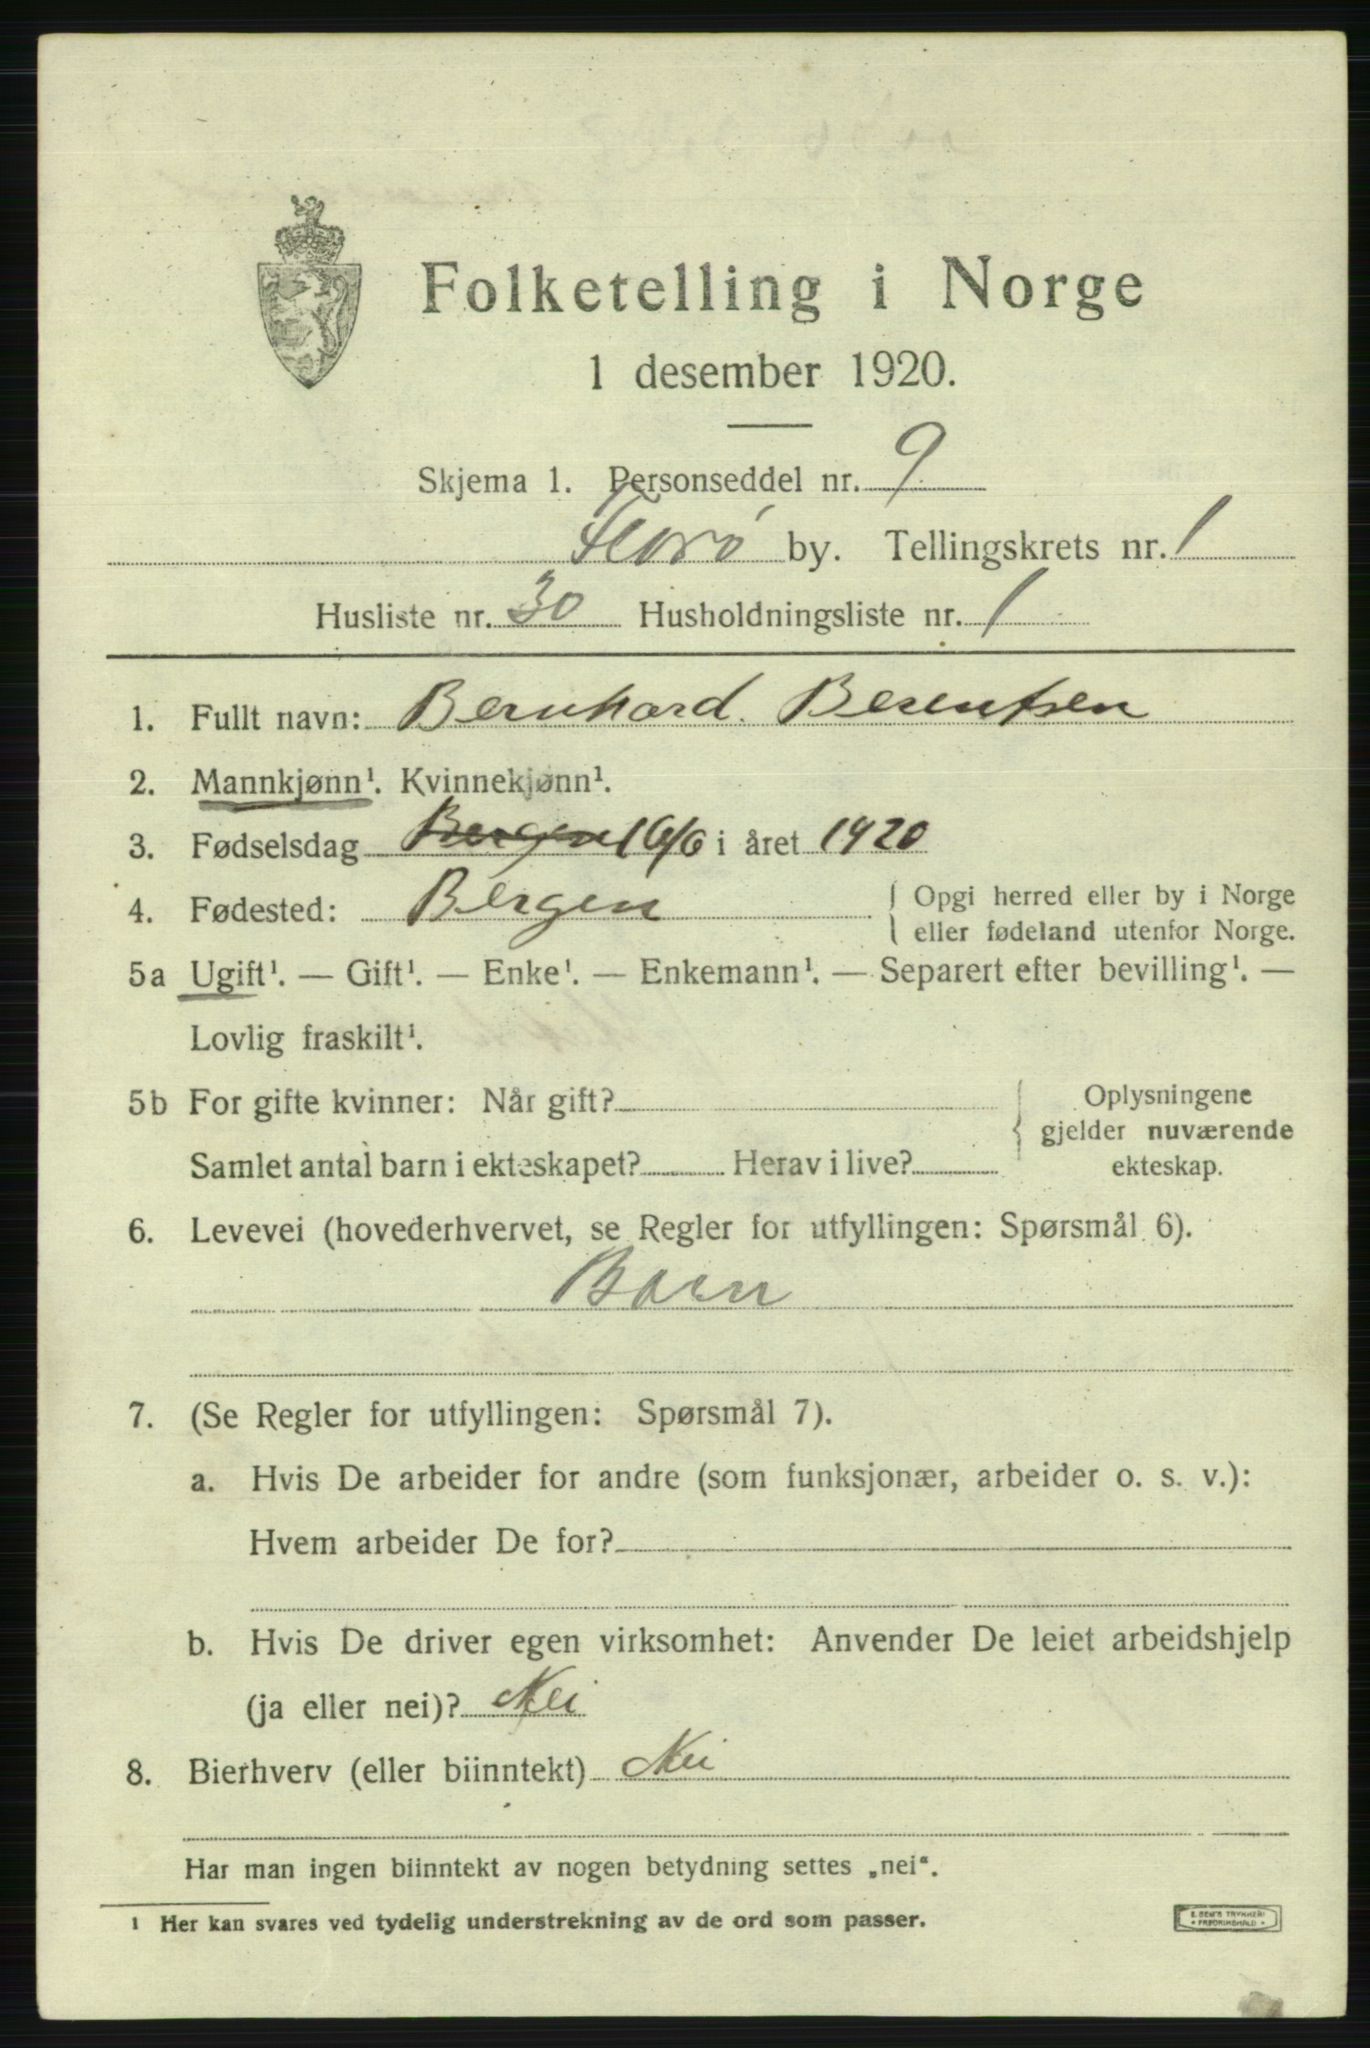 Folketelling i Norge
1 desember 1920.
Skjema 1. Personseddel nr. 9
Florø by. Tellingskrets nr. 1
Husliste nr. 30 Husholdningsliste nr. 1
1. Fullt navn: Bernhard. Berentsen
2. Mannkjønn¹. Kvinnekjønn¹.
3. Fødselsdag Bergen 16/6 i året 1920
4. Fødested: Bergen { Opgi herred eller by i Norge
eller fødeland utenfor Norge.
5a Ugift¹. — Gift¹. — Enke¹. — Enkemann¹. — Separert efter bevilling¹. —
Lovlig fraskilt¹.
5b For gifte kvinner: Når gift? { Oplysningene
gjelder nuværende
Samlet antal barn i ekteskapet? Herav i live? ekteskap.
6. Levevei (hovederhvervet, se Regler for utfyllingen: Spørsmål 6).
Barn
7. (Se Regler for utfyllingen: Spørsmål 7).
a. Hvis De arbeider for andre (som funksjonær, arbeider o. s. v.):
Hvem arbeider De for?
b. Hvis De driver egen virksomhet: Anvender De leiet arbeidshjelp
(ja eller nei)? Nei
8. Bierhverv (eller biinntekt) Nei
Har man ingen biinntekt av nogen betydning settes „nei“.
1 Her kan svares ved tydelig understrekning av de ord som passer.
E. SEM'S TRYKKERI
• FREDRIKSHALD •